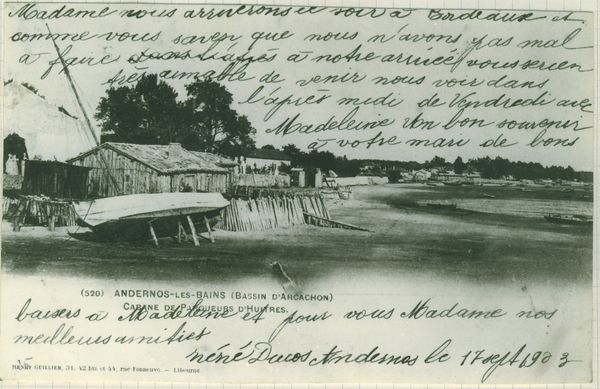 Madame nous arriverons ce soir à Bordeaux et
comme vous savez que nous n'avons pas mal
à faire à notre arrivée vous seriez
très aimable de venir nous voir dans
l'après midi de Vendredi avec
Madeleine bon souvenir
à votre mari de bons
(520) ANDERNOS-LES-BAINS (BASSIN D'ARCACHON)
CABANE DE PARQUEURS D'HUITRES.
baisers à Madeleine et pour vous Madame nos
meilleurs amitiés
néné Ducos Andernos le 17 sept 1903
HENRY GUILLIER, 31, 42 bis et 44, rue Fonneuve. — Libourne